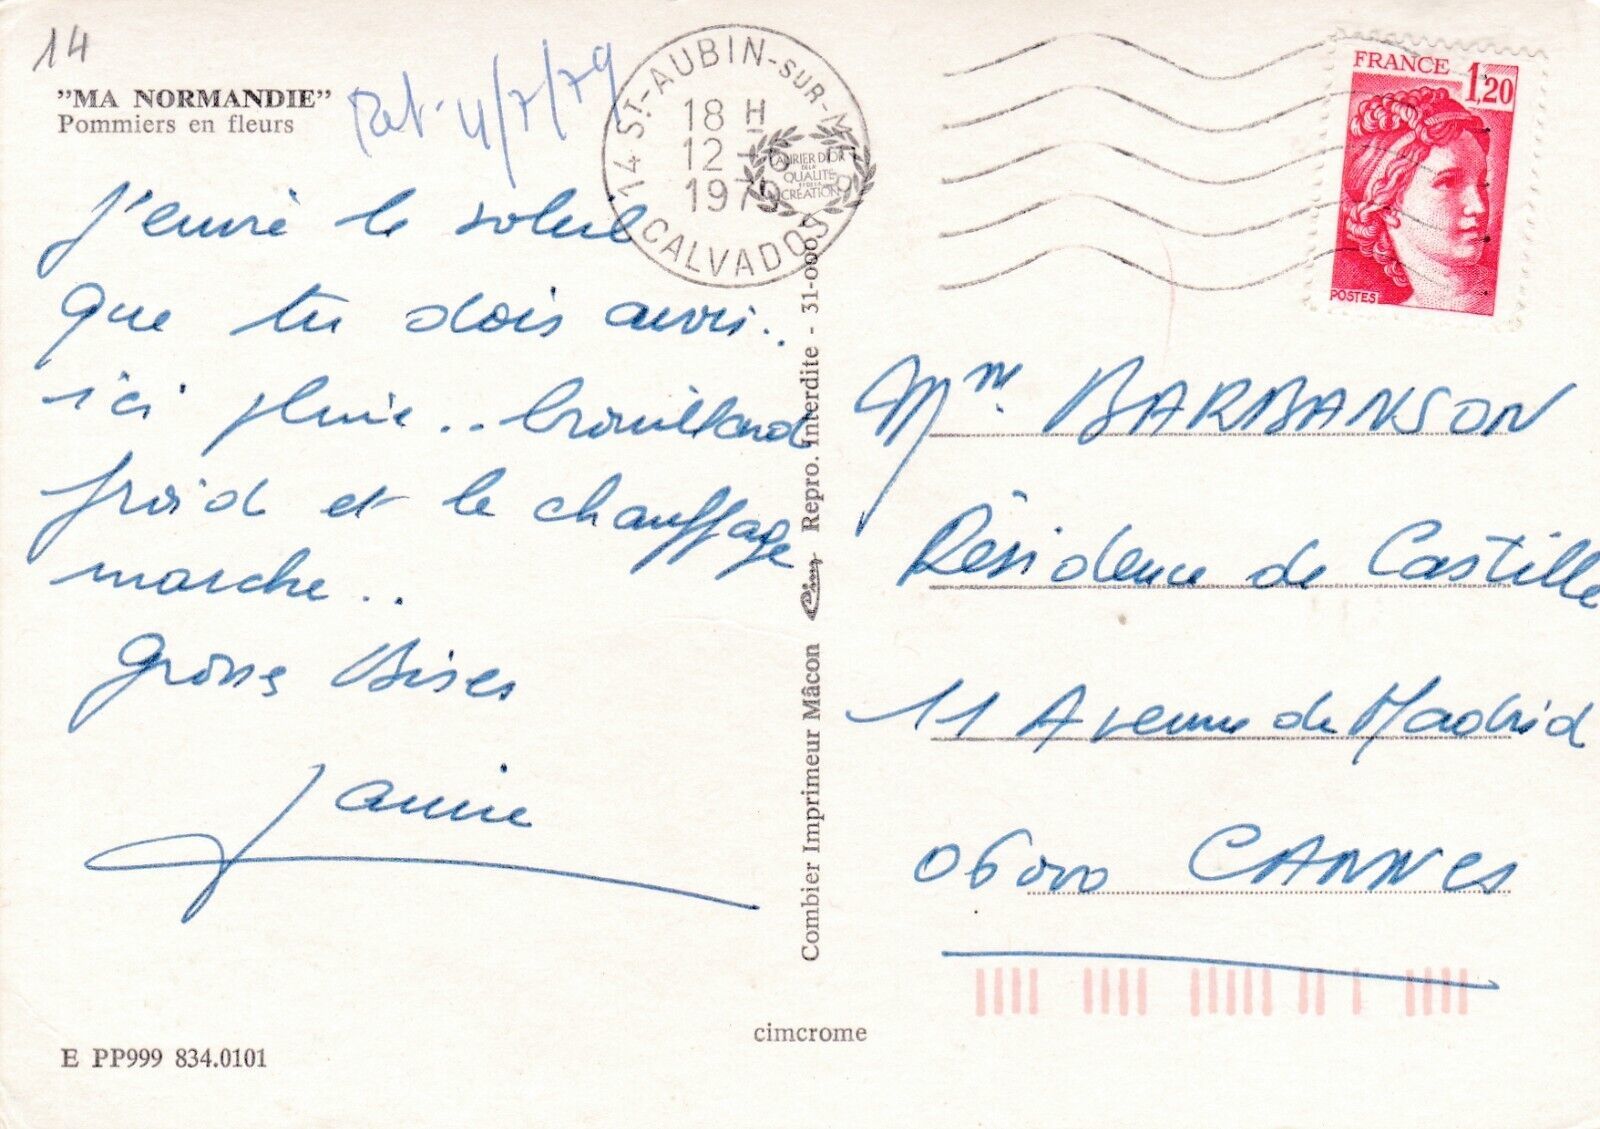 14
"MA NORMANDIE"
Pommiers en fleurs
4/7/79
J'envie le soleil
que tu dois avoir..
ici pluie.. brouillard
froid et le chauffage
marche..
Grosses Bises
Janine
14 ST-AUBIN-SUR-M
18 H
12
1979
CALVADOS
LAURIER D'OR
DE LA
QUALITÉ
CRÉATION
FRANCE 1,20
POSTES
Mme BARBANSON
Résidence de Castille
11 Avenue de Madrid
06000 CANNES
Combier Imprimeur Mâcon Cim Repro. Interdite - 31-000
cimcrome
E PP999 834.0101